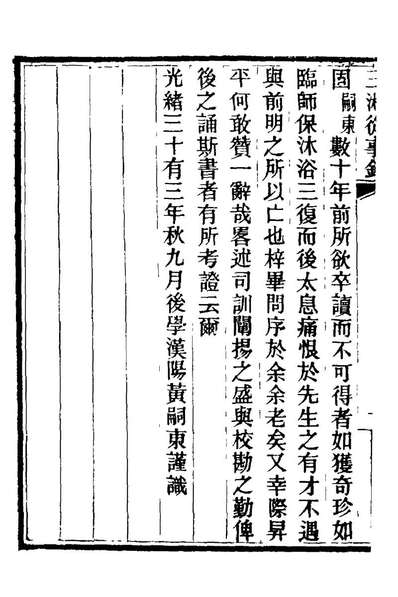 三湘從事錄
固嗣東數十年前所欲卒讀而不可得者如獲奇珍如
臨師保沐浴三復而後太息痛恨於先生之有才不遇
與前明之所以亡也梓畢問序於余余老矣又幸際昇
平何敢贊一辭哉畧述司訓闡揚之盛與校勘之勤俾
後之誦斯書者有所考證云爾
光緒三十有三年秋九月後學漢陽黃嗣東謹識